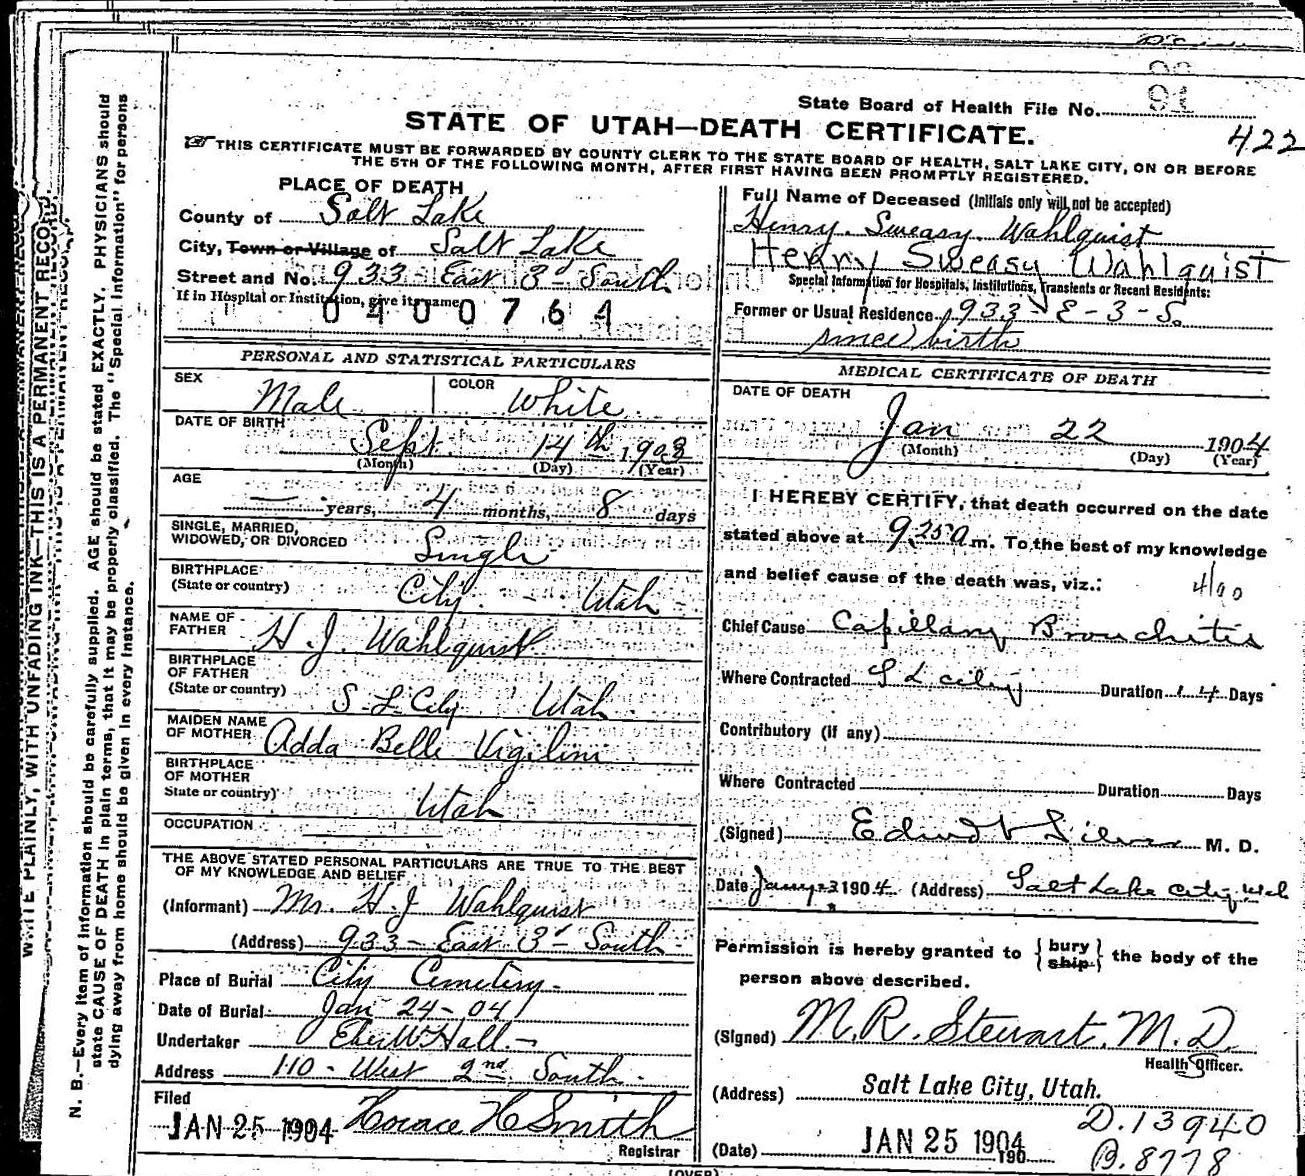 State Board of Health File No. 91
422
STATE OF UTAH—DEATH CERTIFICATE.
THIS CERTIFICATE MUST BE FORWARDED BY COUNTY CLERK TO THE STATE BOARD OF HEALTH, SALT LAKE CITY, ON OR BEFORE
THE 5TH OF THE FOLLOWING MONTH, AFTER FIRST HAVING BEEN PROMPTLY REGISTERED.
PLACE OF DEATH
County of Salt Lake
City, Town or Village of Salt Lake
Street and No. 933 East 3d South
If in Hospital or Institution, give its name
0400764
Full Name of Deceased (Initials only will not be accepted)
Henry Sweasy Wahlquist
Henry Sweasy Wahlquist
Special Information for Hospitals, Institutions, Transients or Recent Residents:
Former or Usual Residence 933 - E - 3 - S.
since birth
PERSONAL AND STATISTICAL PARTICULARS
SEX Male COLOR White
DATE OF BIRTH
Sept 14th 1903
(Month) (Day) (Year)
AGE
— years, 4 months, 8 days
SINGLE, MARRIED,
WIDOWED, OR DIVORCED Single
BIRTHPLACE
(State or country) City - Utah -
NAME OF
FATHER H. J. Wahlquist
BIRTHPLACE
OF FATHER
(State or country) S. L. City Utah
MAIDEN NAME
OF MOTHER Adda Belle Vigilini
BIRTHPLACE
OF MOTHER
State or country) Utah
OCCUPATION
THE ABOVE STATED PERSONAL PARTICULARS ARE TRUE TO THE BEST
OF MY KNOWLEDGE AND BELIEF
(Informant) Mr. H. J. Wahlquist
(Address) 933 - East 3d South -
Place of Burial City Cemetery -
Date of Burial Jan 24 - 04
Undertaker Eber W Hall -
Address 110 - West 2nd South -
Filed
JAN 25 1904 Horace H Smith
Registrar
MEDICAL CERTIFICATE OF DEATH
DATE OF DEATH
Jan 22 1904
(Month) (Day) (Year)
I HEREBY CERTIFY, that death occurred on the date
stated above at 9.25 a m. To the best of my knowledge
and belief cause of the death was, viz.:
Chief Cause Capillary Bronchitis
Where Contracted S L city Duration 4 Days
Contributory (if any)
Where Contracted Duration Days
(Signed) M. D.
Date 1904 (Address) Salt Lake City
Permission is hereby granted to { bury ship } the body of the
person above described.
(Signed) M. R. Stewart, M. D.
Health Officer.
(Address) Salt Lake City, Utah.
D. 13940
(Date) JAN 25 1904 190
B. 8778
(OVER)
N. B.—Every item of information should be carefully supplied. AGE should be stated EXACTLY. PHYSICIANS should
state CAUSE OF DEATH in plain terms, that it may be properly classified. The "Special Information" for persons
dying away from home should be given in every instance.
WRITE PLAINLY, WITH UNFADING INK—THIS IS A PERMANENT RECORD